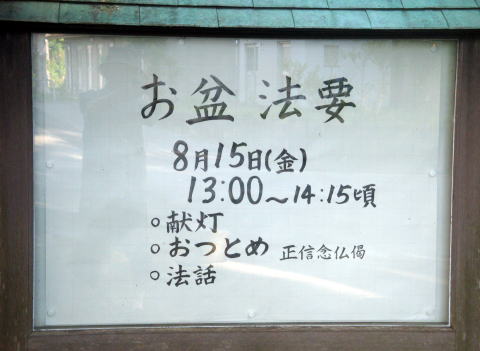 お盆法要
8月15日(金)
13:00～14:15頃
○献灯
○おつとめ 正信念仏偈
○法話